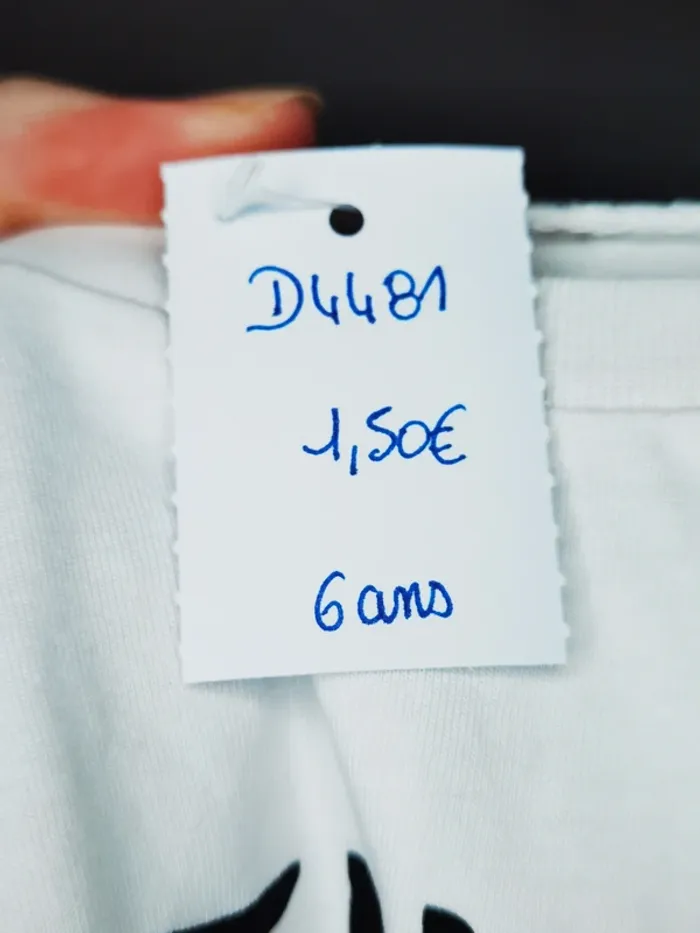 D4481
1,50€
6 ans